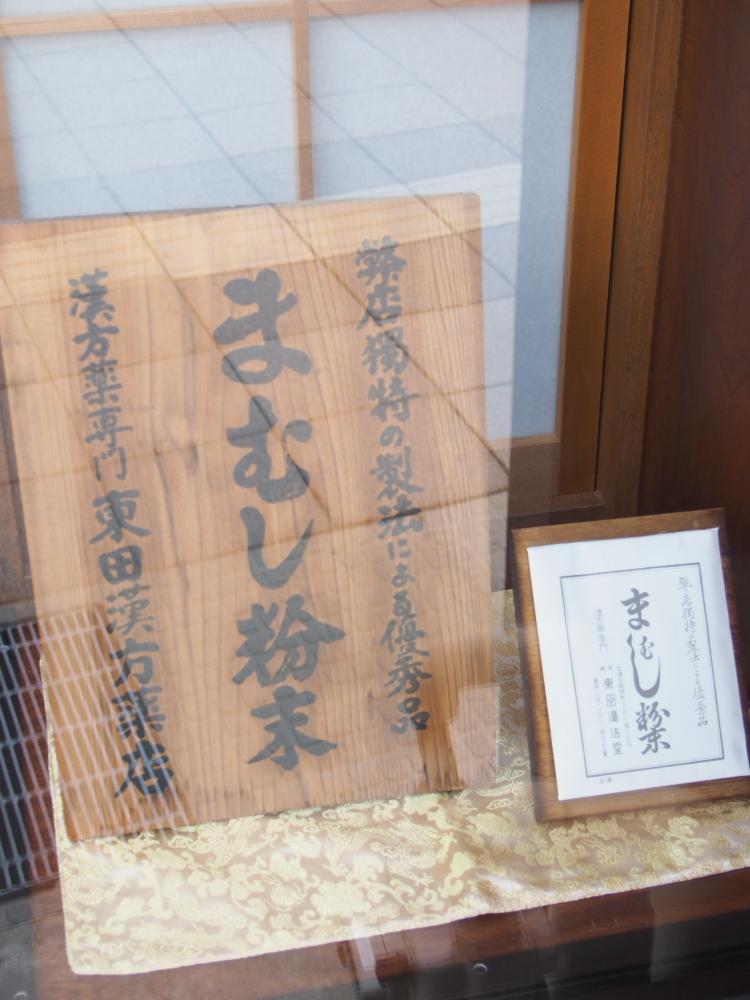 弊店獨特の製法による優秀品
まむし粉末
漢方薬専門 東田漢方薬店
弊店獨特の製法による優秀品
まむし粉末
東田漢法堂